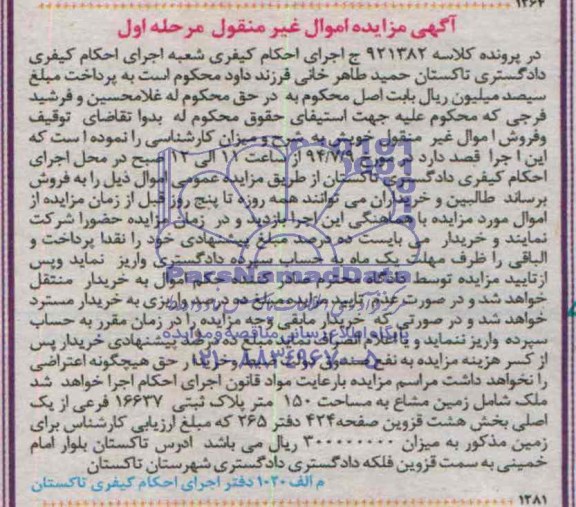 ۱۲۶۴
آگهی مزایده اموال غیر منقول مرحله اول
در پرونده کلاسه ۹۲۱۳۸۲ ج اجرای احکام کیفری شعبه اجرای احکام کیفری
دادگستری تاکستان حمید طاهر خانی فرزند داود محکوم است به پرداخت مبلغ
سیصد میلیون ریال بابت اصل محکوم به در حق محکوم له غلامحسین و فرشید
فرجی که محکوم علیه جهت استیفای حقوق محکوم له بدوا تقاضای توقیف
وفروش ا موال غیر منقول خویش به شرح و میزان کارشناسی را نموده ا ست که
این ا جرا قصد دارد در مورخ ۹۴/۷/۹ از ساعت ۱۱ الی ۱۲ صبح در محل اجرای
احکام کیفری دادگستری تاکستان از طریق مزایده عمومی اموال ذیل را به فروش
برساند طالبین و خریداران می توانند همه روزه تا پنج روز قبل از زمان مزایده از
اموال مورد مزایده با هماهنگی این اجرا بازدید و در زمان مزایده حضورا شرکت
نمایند و خریدار می بایست ده درصد مبلغ پیشنهادی خود را نقدا پرداخت و
الباقی را ظرف مهلت یک ماه به حساب سپرده دادگستری واریز نماید وپس
ازتایید مزایده توسط دادگاه محترم صادر کننده حکم اموال به خریدار منتقل
خواهد شد و در صورت عدم تایید مزایده مبلغ ده درصد واریزی به خریدار مسترد
خواهد شد و در صورتی که خریدار مابقی وجه مزایده را در زمان مقرر به حساب
سپرده واریز ننماید و یا اعلام انصراف نماید مبلغ ده درصد پیشنهادی خریدار پس
از کسر هزینه مزایده به نفع صندوق دولت ضبط و خریدار حق هیچگونه اعتراضی
را نخواهد داشت مراسم مزایده بارعایت مواد قانون اجرای احکام اجرا خواهد شد
ملک شامل زمین مشاع به مساحت ۱۵۰ متر پلاک ثبتی ۱۶۶۳۷ فرعی از یک
اصلی بخش هشت قزوین صفحه۴۲۴ دفتر ۲۶۵ که مبلغ ارزیابی کارشناس برای
زمین مذکور به میزان ۳۰۰۰۰۰۰۰۰ ریال می باشد ادرس تاکستان بلوار امام
خمینی به سمت قزوین فلکه دادگستری دادگستری شهرستان تاکستان
م الف ۱۰۲۰ دفتر اجرای احکام کیفری تاکستان
۱۲۸۱
ParsNamadData
پایگاه اطلاع رسانی مناقصه و مزایده
۰۲۱-۸۸۳۴۹۶۷۰-۵